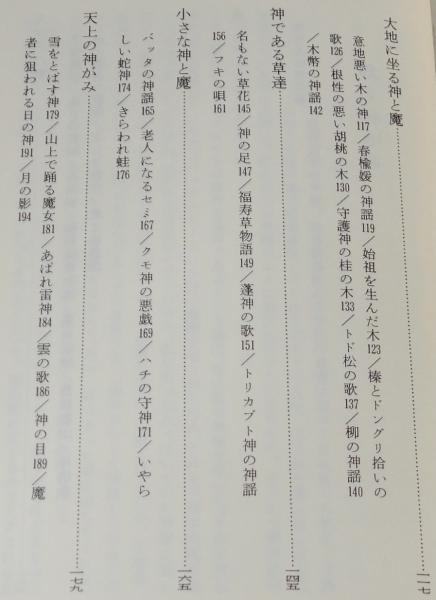 大地に坐る神と魔……一一七
意地悪い木の神117／春楡媛の神謡119／始祖を生んだ木123／榛とドングリ拾いの
歌126／根性の悪い胡桃の木130／守護神の桂の木133／トド松の歌137／柳の神謡140
／木幣の神謡142
神である草達……一四五
名もない草花145／神の足147／福寿草物語149／蓬神の歌151／トリカブト神の神謡
156／フキの唄161
小さな神と魔……一六五
バッタの神謡165／老人になるセミ167／クモ神の悪戯169／ハチの守神171／いやら
しい蛇神174／きらわれ蛙176
天上の神がみ……一七九
雪をとばす神179／山上で踊る魔女181／あばれ雷神184／雲の歌186／神の目189／魔
者に狙われる日の神191／月の影194